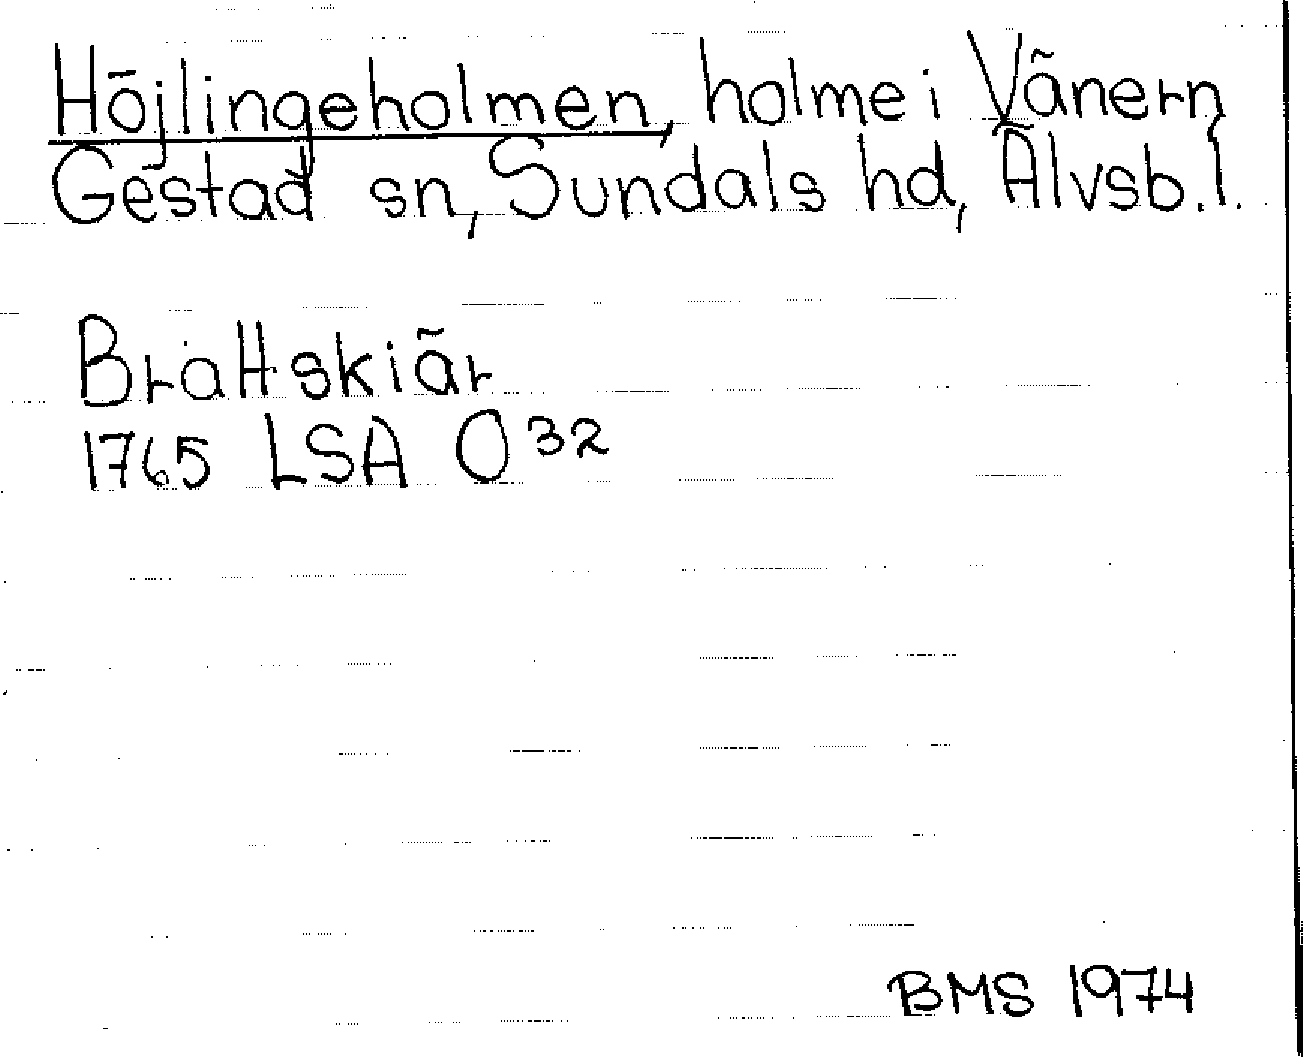 Höjlingeholmen, holme i Vänern
Gestad sn, Sundals hd, Älvsb. l.
Brattskiär
1765 LSA O 32
BMS 1974